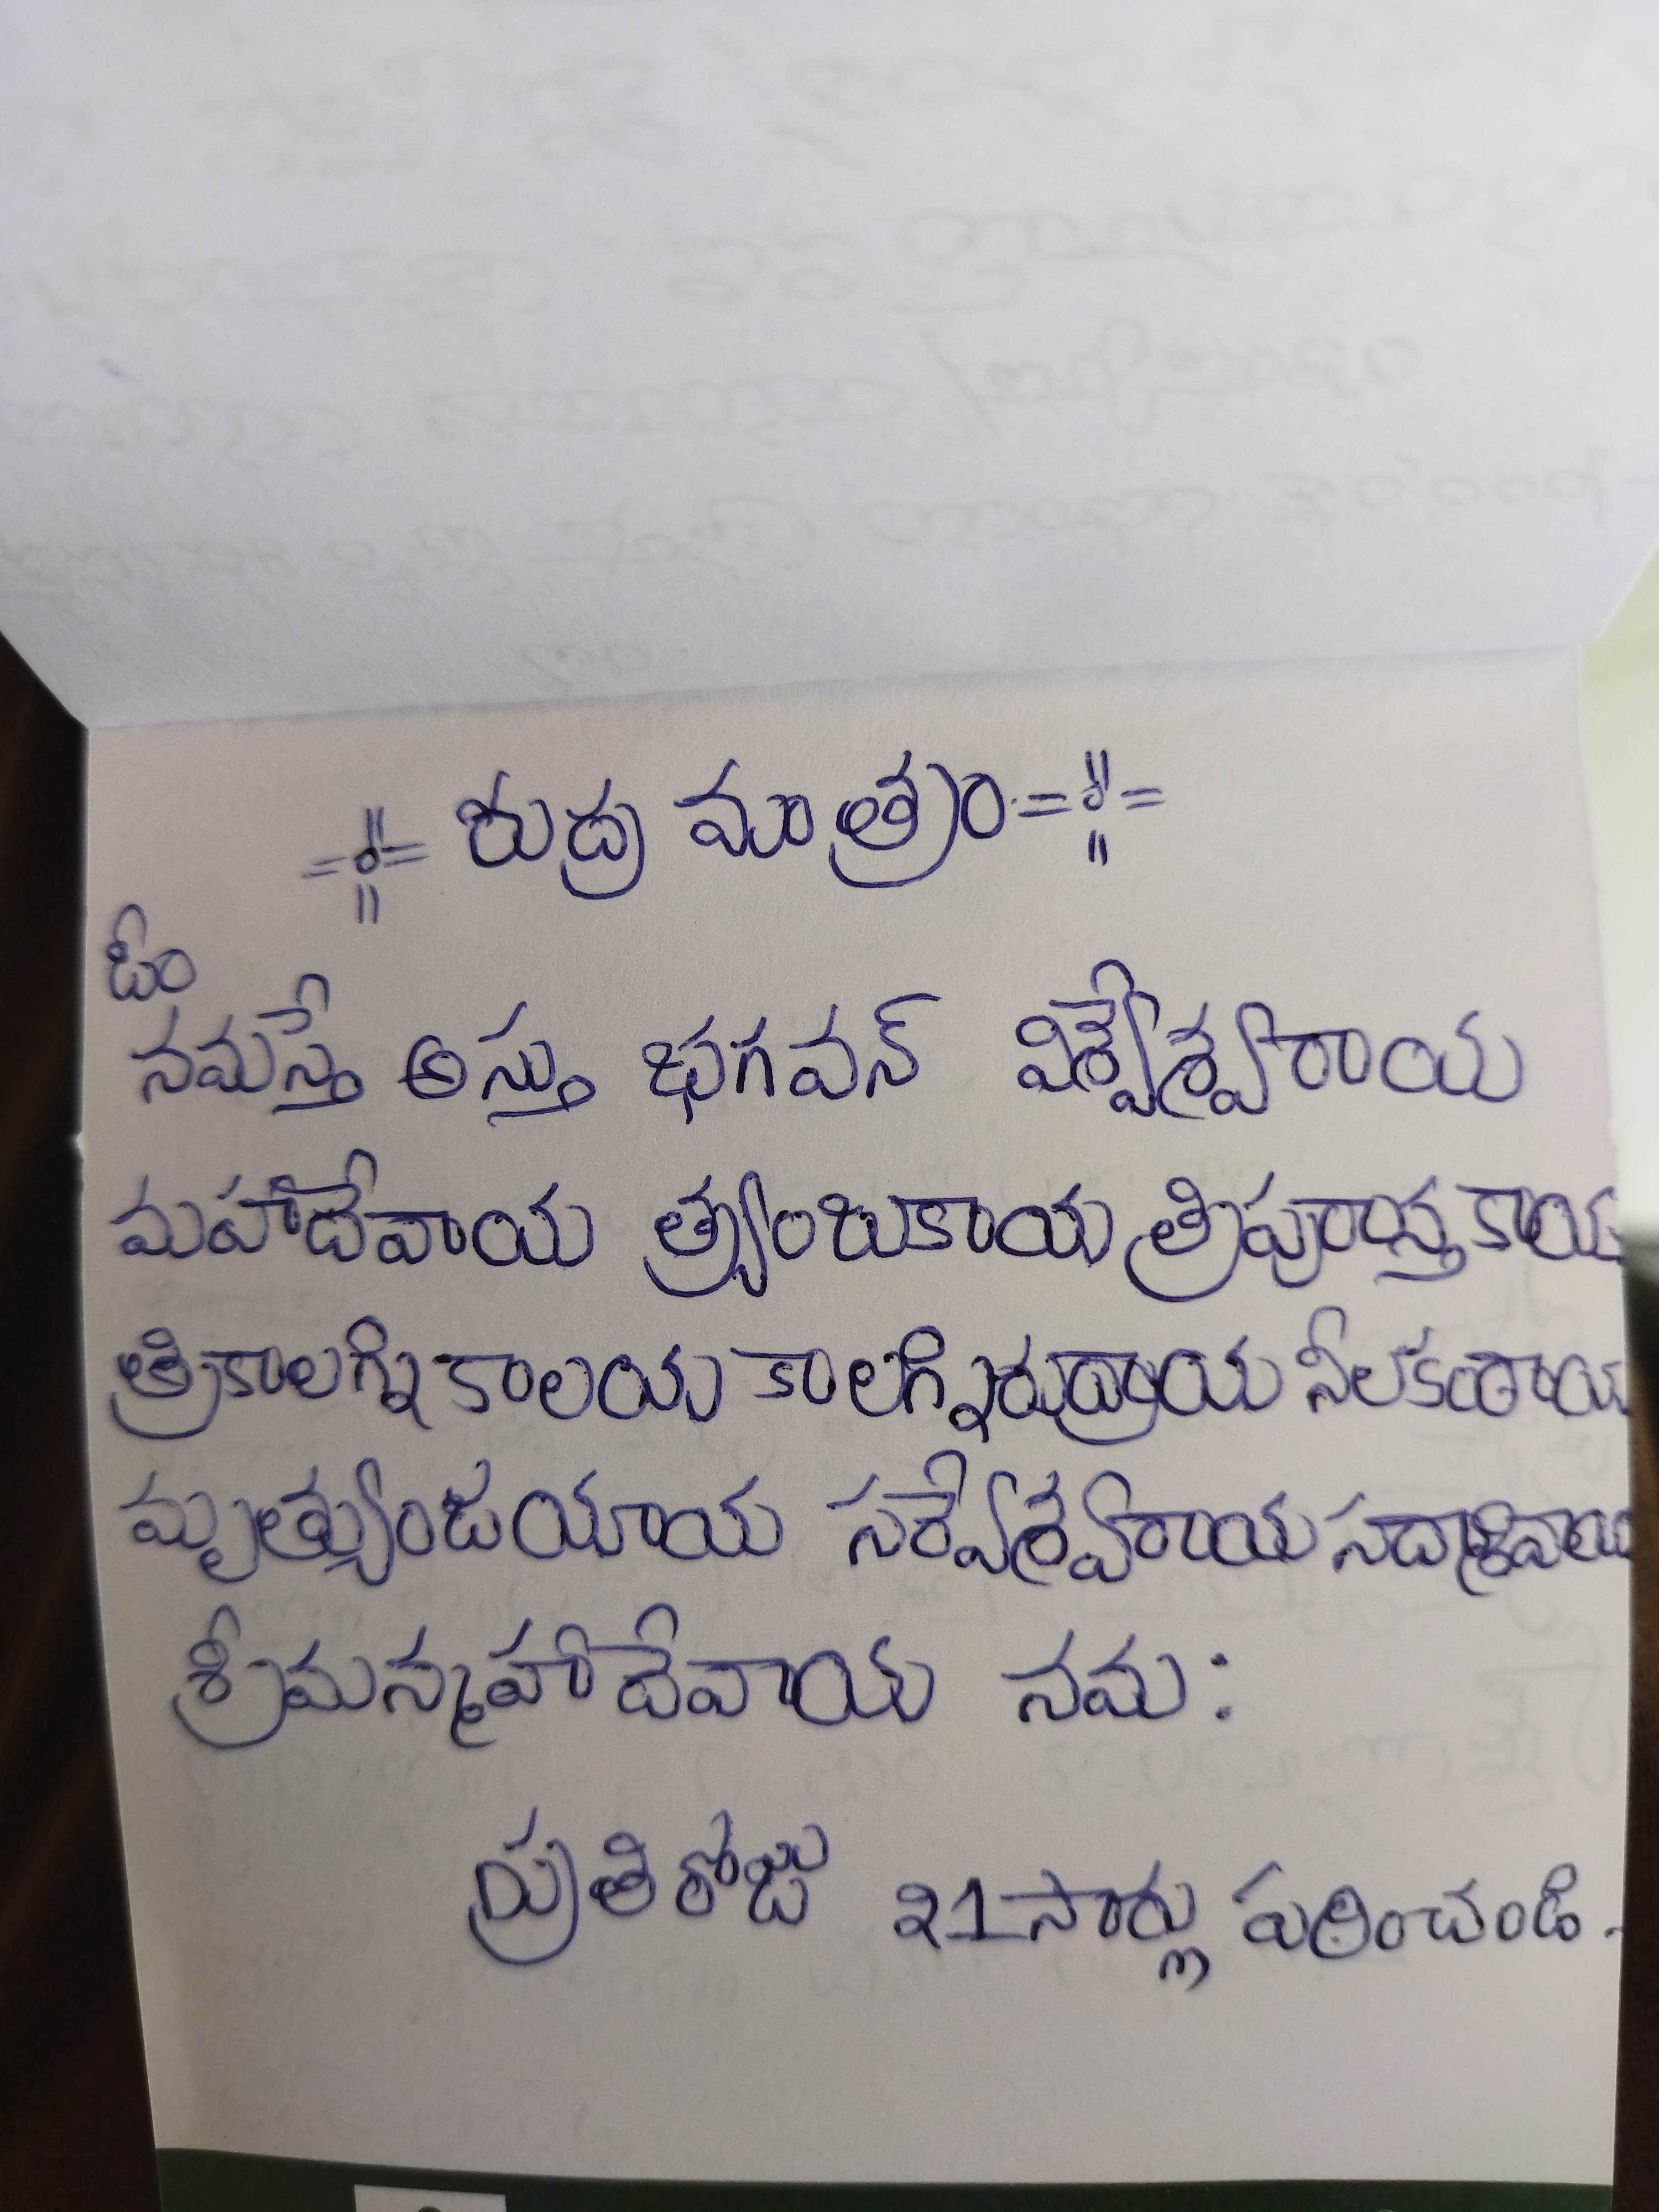 రుద్ర మాత్రం
ఓం
నమస్తే అస్తు భగవన్ విశ్వేశ్వరాయ
మహాదేవాయ త్ర్యంబకాయ త్రిపురాన్తకాయ
త్రికాలగ్ని కాలయ కాలగ్నిరుద్రాయ నీలకంఠాయ
మృత్యుంజయాయ సర్వేశ్వరాయ సదాశివాయ
శ్రీమన్మహాదేవాయ నమ:
ప్రతిరోజు 21సార్లు పఠించండి.